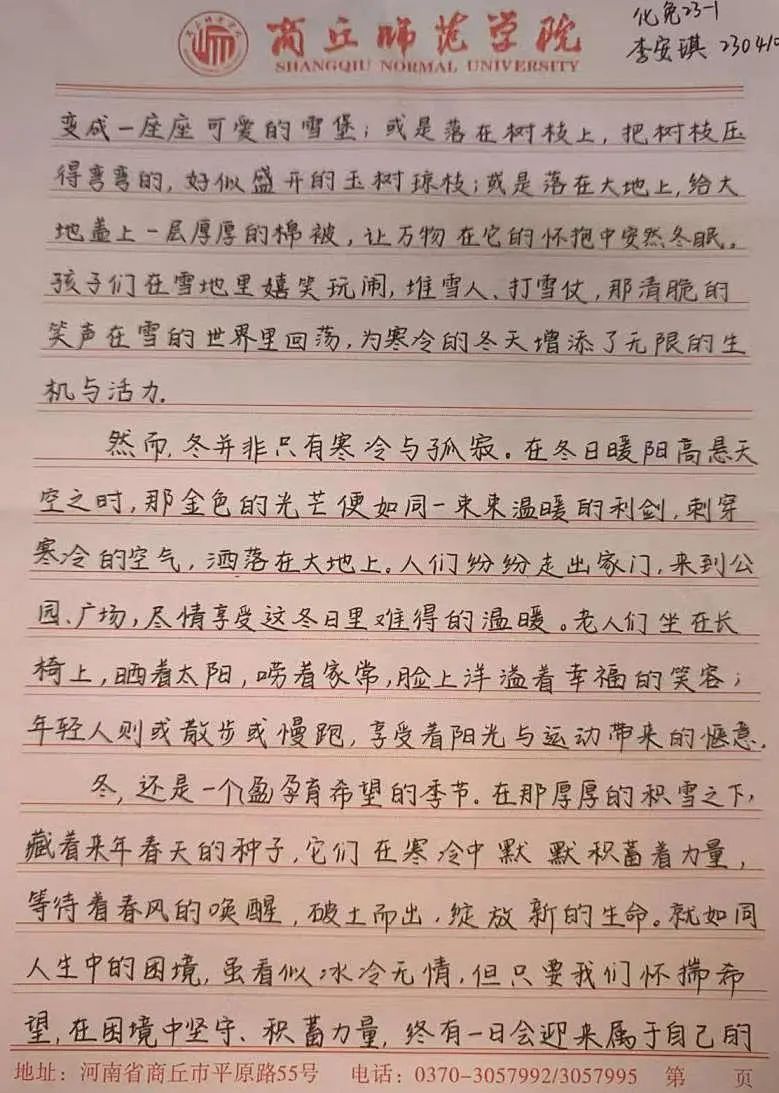 化免23-1
商丘师范学院
李安琪 230410
SHANGQIU NORMAL UNIVERSITY
变成一座座可爱的雪堡；或是落在树枝上，把树枝压
得弯弯的，好似盛开的玉树琼枝；或是落在大地上，给大
地盖上一层厚厚的棉被，让万物在它的怀抱中安然冬眠。
孩子们在雪地里嬉笑玩闹，堆雪人、打雪仗，那清脆的
笑声在雪的世界里回荡，为寒冷的冬天增添了无限的生
机与活力．
然而，冬并非只有寒冷与孤寂。在冬日暖阳高悬天
空之时，那金色的光芒便如同一束束温暖的利剑，刺穿
寒冷的空气，洒落在大地上。人们纷纷走出家门，来到公
园、广场，尽情享受这冬日里难得的温暖。老人们坐在长
椅上，晒着太阳，唠着家常，脸上洋溢着幸福的笑容；
年轻人则或散步或慢跑，享受着阳光与运动带来的惬意．
冬，还是一个孕育希望的季节．在那厚厚的积雪之下，
藏着来年春天的种子，它们在寒冷中默默积蓄着力量，
等待着春风的唤醒，破土而出，绽放新的生命。就如同
人生中的困境，虽看似冰冷无情，但只要我们怀揣希
望，在困境中坚守、积蓄力量，终有一日会迎来属于自己的
地址：河南省商丘市平原路55号 电话：0370-3057992/3057995 第 页